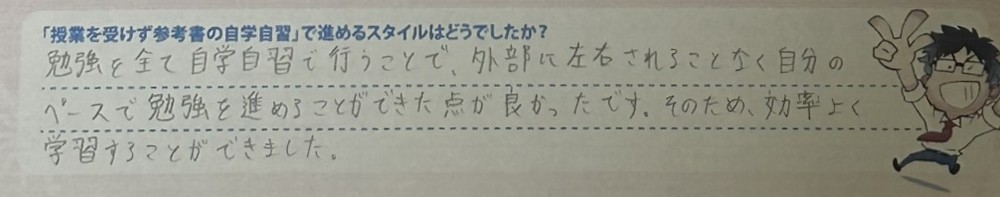 「授業を受けず参考書の自学自習」で進めるスタイルはどうでしたか？
勉強を全て自学自習で行うことで、外部に左右されることなく自分の
ペースで勉強を進めることができた点が良かったです。そのため、効率よく
学習することができました。